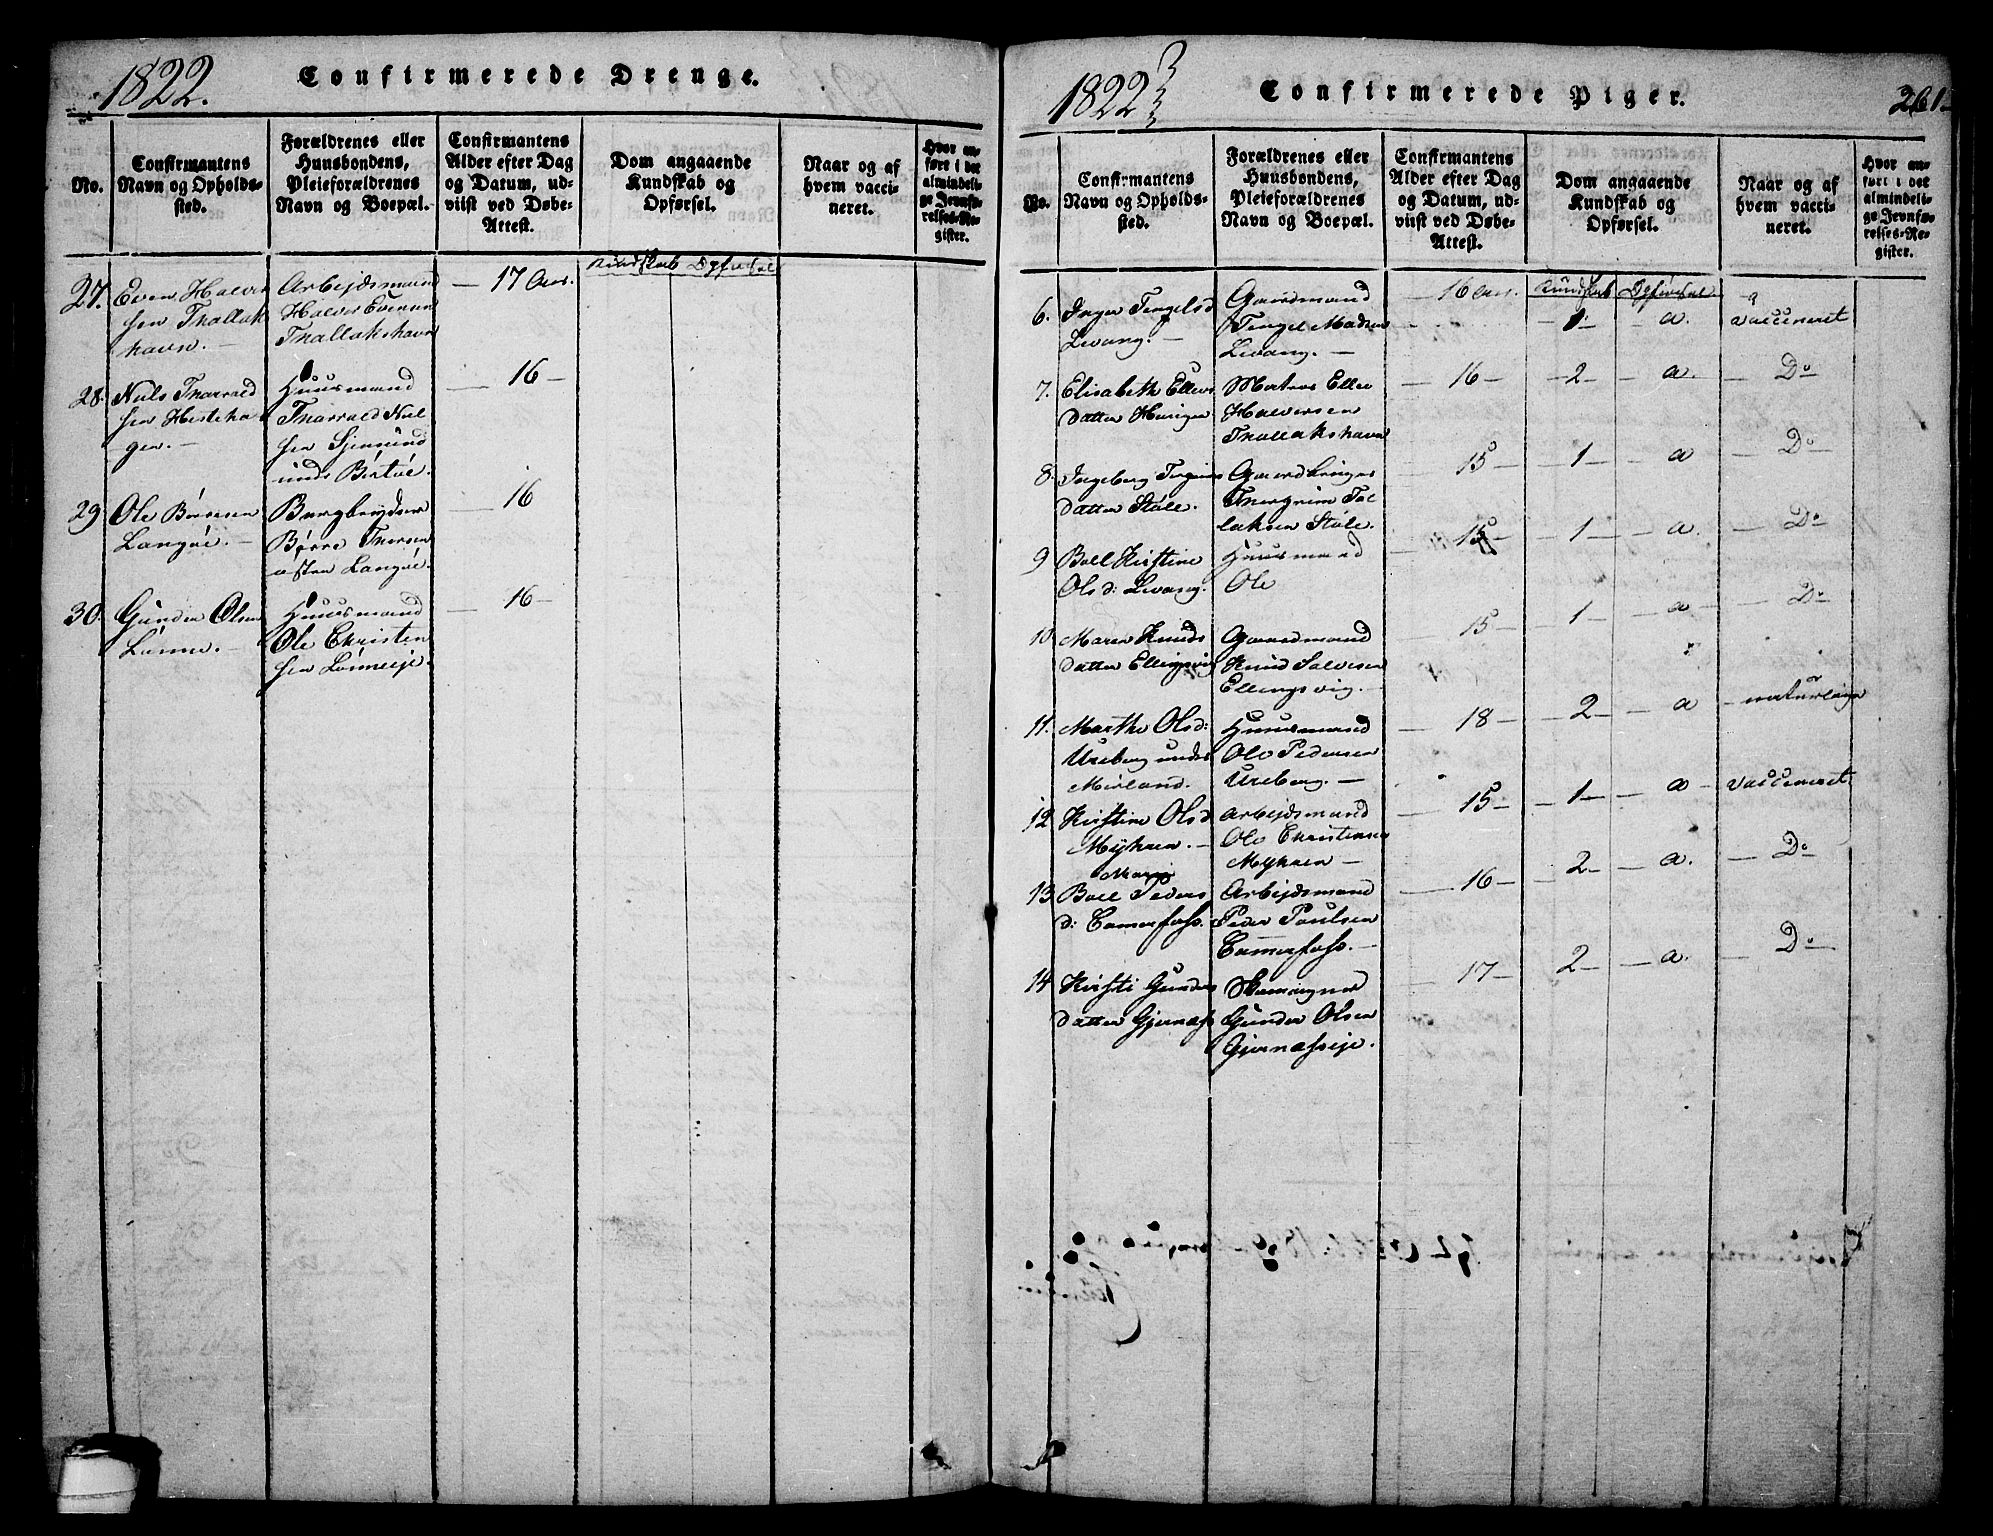 1822.
Confirmerede Drenge.
No.
Confirmantens
Navn og Opholds-
sted.
Forældrenes eller
Huusbondens,
Pleieforældrenes
Navn og Boepæl.
Confirmantens
Alder efter Dag
og Datum, ud-
viist ved Døbe-
Attest.
Dom angaaende
Kundskab og
Opførsel.
Naar og af
hvem vacci-
neret.
Hvor an-
ført i det
almindeli-
ge Jevnfø-
relses-Re-
gister.
Kundskab Opførsel
27.
Even Halver
sen Thallak
havn. —
Arbejdsmand
Halver Evensen
Thallakshavn
— 17 Aar.
28.
Niels Tharrald
sen Hesteha
gen. —
Huusmand
Tharrald Niel
sen
unds Bertøe.
— 16 —
29
Ole Børresen
Langøe. —
Børre Thorsen
Langøe.
— 16
30.
Gunder Olsen
Lønne. —
Huusmand
Ole Christen
sen Lønneeje.
— 16 —
1822
Confirmerede Piger.
261
No.
Confirmantens
Navn og Opholds-
sted.
Forældrenes eller
Huusbondens,
Pleieforældrenes
Navn og Boepæl.
Confirmantens
Alder efter Dag
og Datum, ud-
viist ved Døbe-
Attest.
Dom angaaende
Kundskab og
Opførsel.
Naar og af
hvem vacci-
neret.
Hvor an-
ført i det
almindeli-
ge Jevnfø-
relses-Re-
gister.
Kundskab Opførsel
6.
Inger Tengelsd
Levang. —
Gaardmand
Tengel Madsen
Levang. —
— 16 Aar.
— 1 —
— a.
vaccineret
7.
Elisabeth Ellevs
datter
Matros Ellev
Halversen
Thallakshavn
— 16 —
— 2 —
— a.
— Do
8.
Ingeborg Torgrims
datter Støle.
Thorgrim Tol
laksen Støle.
— 15
— 1 —
— a
— Do
9
Boel Kirstine
Olsd: Levang.
Huusmand
Ole
— 15 —
— 1 —
— a.
— Do
10.
Maren Knuds
datter Ellingsvig
Gaardmand
Knud Salvesen
Ellingsvig. —
— 15
— 1 —
— a
— Do
11.
Marthe Olsd:
Ureberg under
Mørland.
Huusmand
Ole Pedersen
Ureberg. —
— 18 —
— 2 —
— a
— naturlige
12
Kirstine Olsd
Myhren. —
Arbejdsmand
Ole Christensen
Myhren —
— 15 —
— 1 —
— a —
vaccineret
13
Maria
Boel Peders
d: Cammerfoss.
Arbejdsmand
Peder Poulsen
Cammerfoss. —
— 16 —
— 2 —
— a.
— Do
14
Kirsti Gunders
datter Gjernæss
Gunder Olsen
Gjernæsseje.
— 17 —
— 2 —
— a.
— Do —